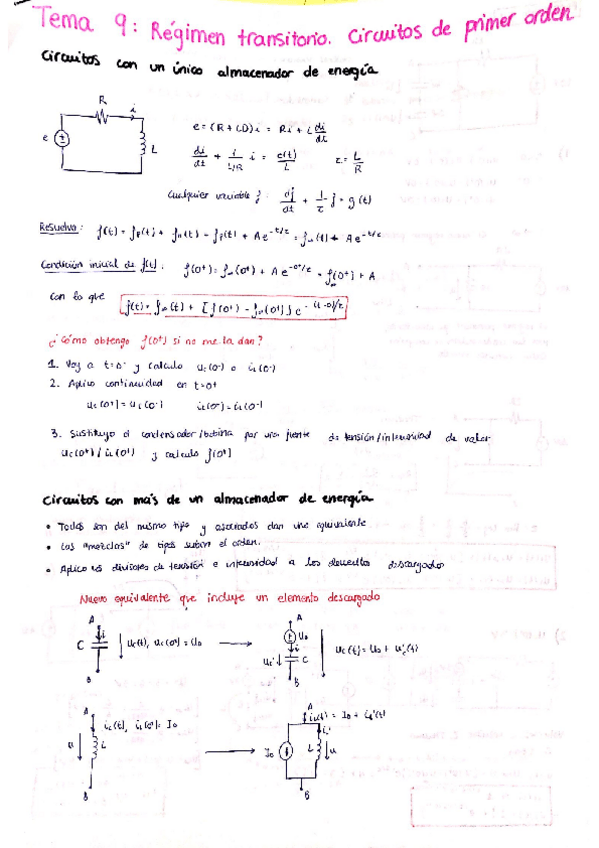 Tema 9: Régimen transitorio. Circuitos de primer orden
Circuitos con un único almacenador de energía
R
i
e
L
e = (R + LD) i = Ri + L di/dt
di/dt + i/(L/R) i = e(t)/L
τ = L/R
Cualquier variable f: df/dt + 1/τ f = g(t)
Resuelvo: f(t) = fp(t) + fh(t) = fp(t) + A e^-t/τ = f∞(t) + A e^-t/τ
Condición inicial de f(t): f(0+) = f∞(0+) + A e^-0+/τ = f∞(0+) + A
con lo que f(t) = f∞(t) + [f(0+) - f∞(0+)] e^-(t-0)/τ
¿Cómo obtengo f(0+) si no me la dan?
1. Voy a t=0- y calculo uc(0-) o iL(0-)
2. Aplico continuidad en t=0+
uc(0+) = uc(0-) iL(0+) = iL(0-)
3. Sustituyo el condensador/bobina por una fuente de tensión/intensidad de valor
uc(0+) / iL(0+) y calculo f(0+)
Circuitos con más de un almacenador de energía
• Todos son del mismo tipo y asociados dan uno equivalente.
• Las "mezclas" de tipos suben el orden.
• Aplico los divisores de tensión e intensidad a los elementos descargados
Nuevo equivalente que incluye un elemento descargado
A
C
i
uc(t), uc(0-) = U0
B
A
U0
i
uc'
C
B
uc(t) = U0 + uc'(t)
A
iL(t), iL(0-) = I0
u
L
B
A
iL(t) = I0 + iL'(t)
iL'
I0
L
u
B